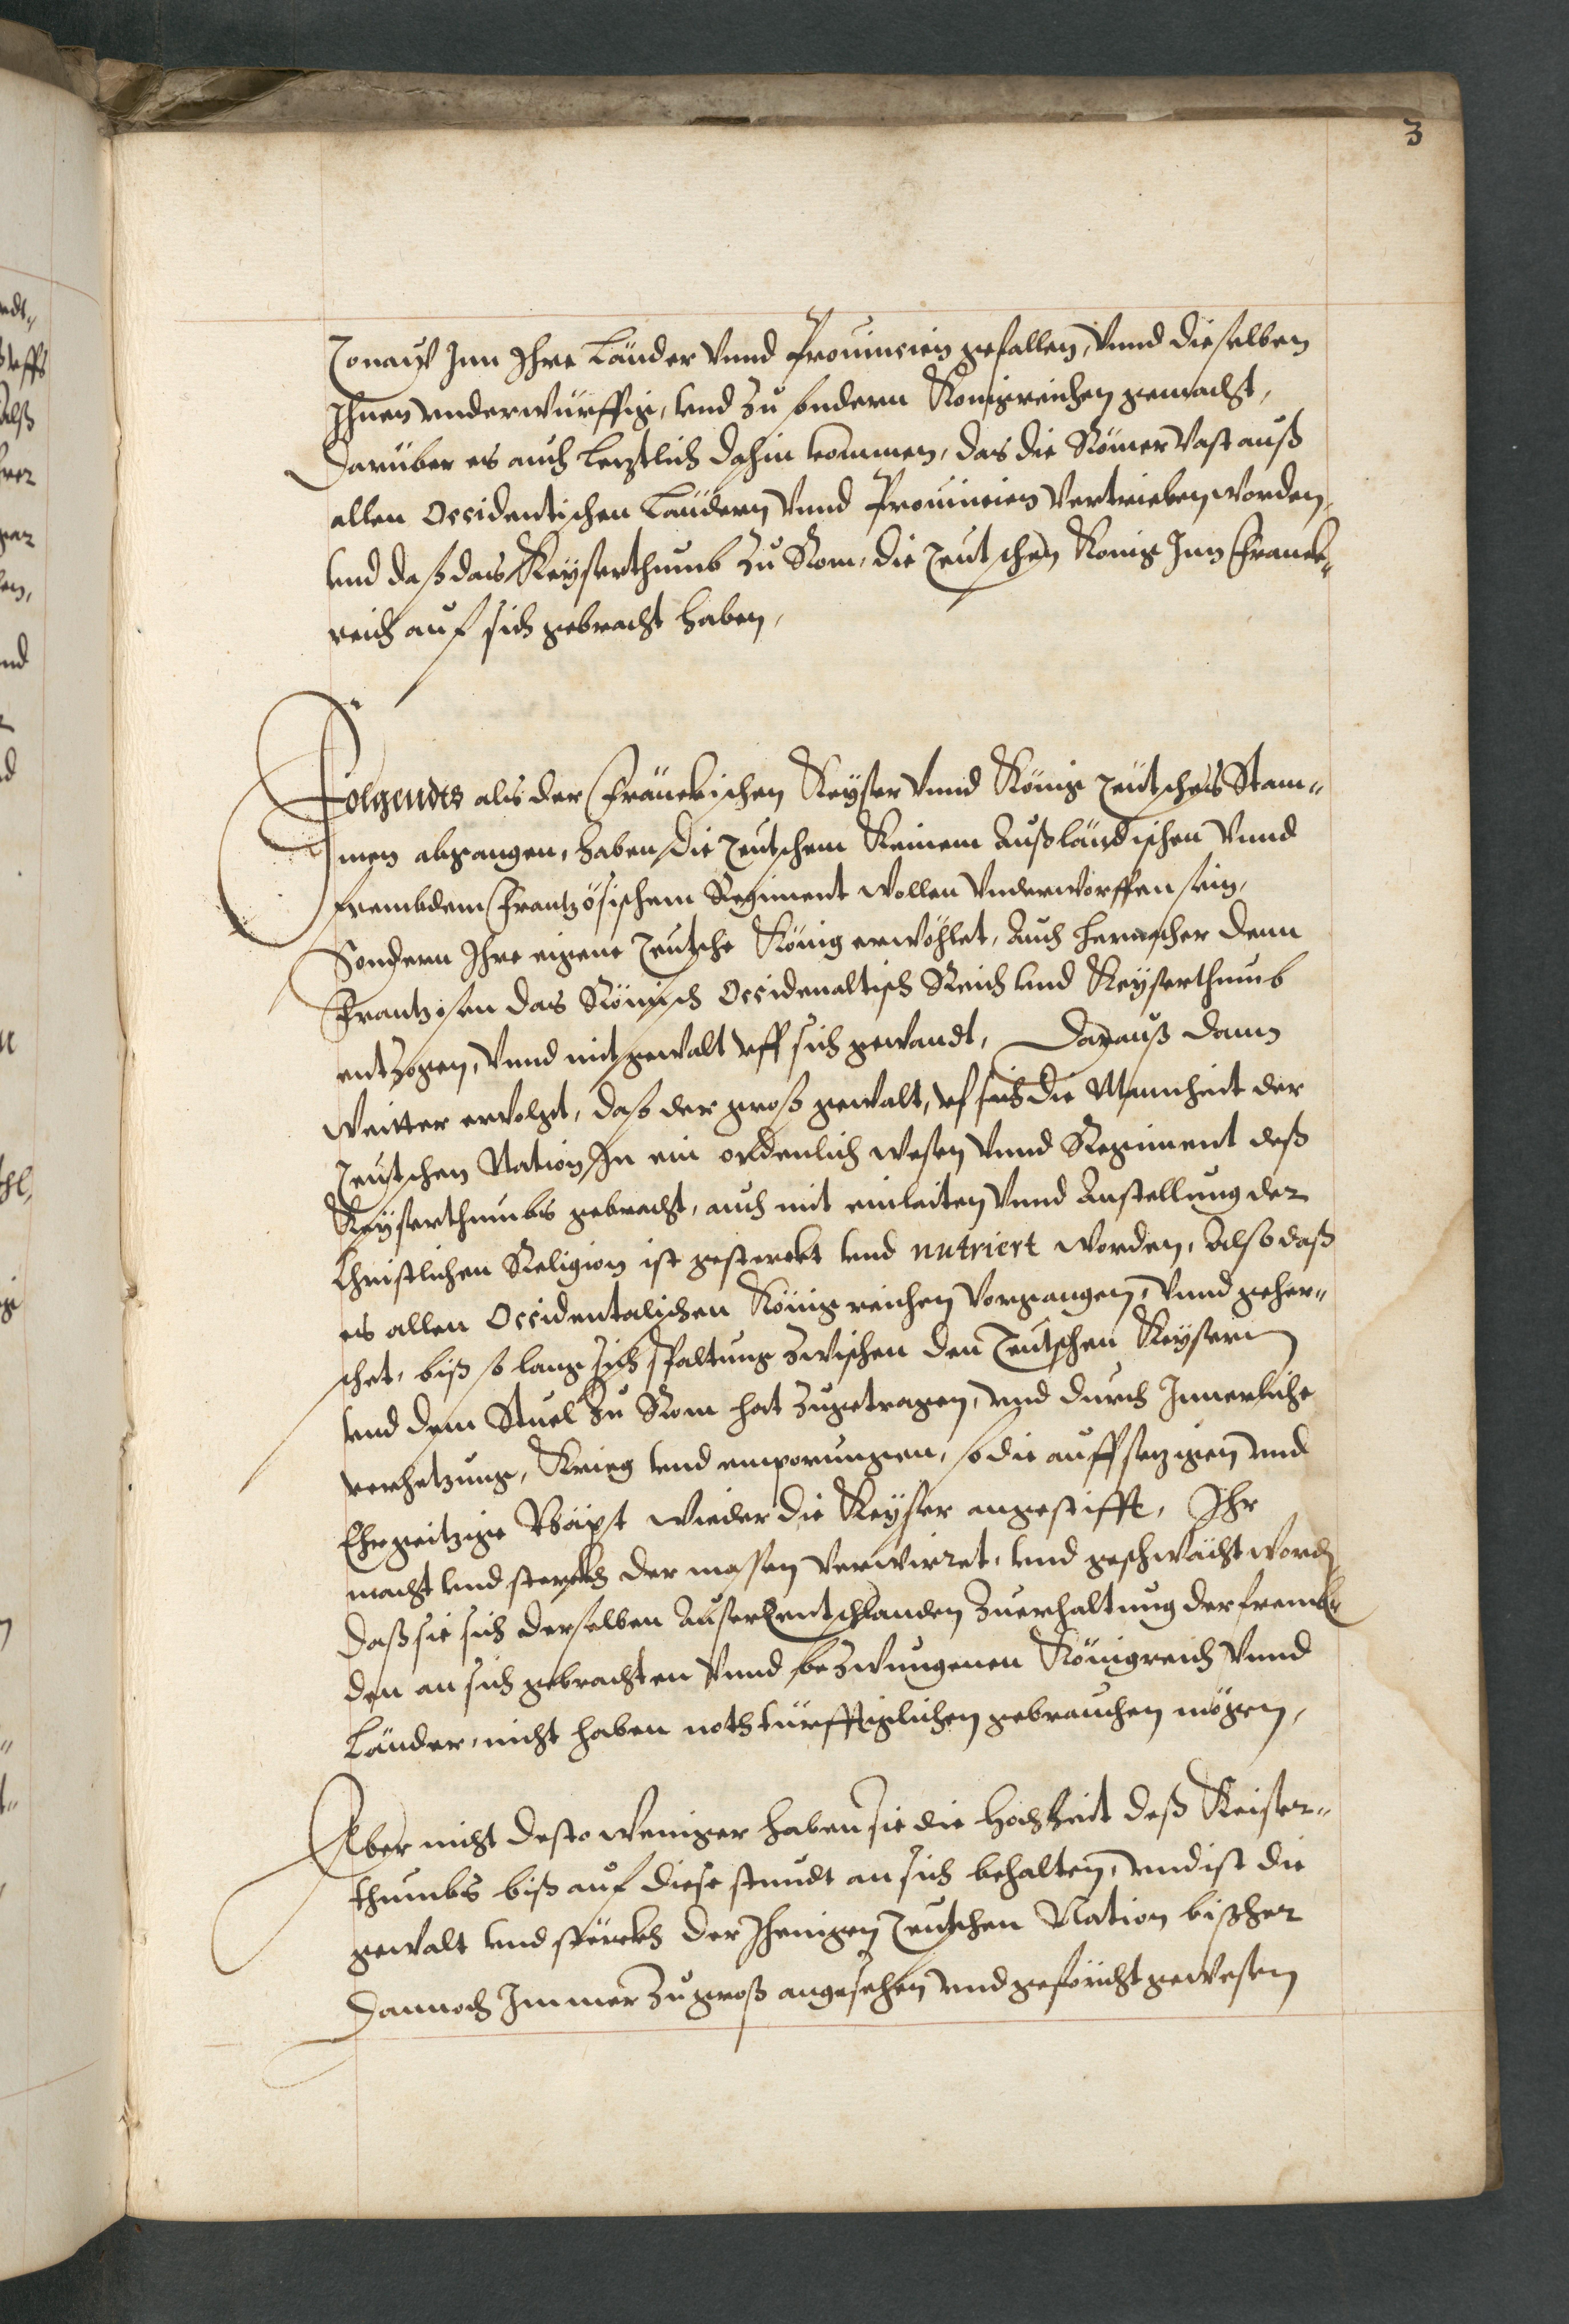 3
Tonauw Inn Ihre Länder Vnnd Prouincien gefallen, Vnnd dieselben
Ihnen vnderwürffig, vnd zu sondern Konigreichen gemacht,
Darüber es auch letztlich dahin kommen, das die Römer Vast auß
allen Occidentischen Ländern Vnnd Prouincien Vertrieben worden,
vnd daß das Keyserthumb zu Rom, die Teutschen Konig Inn Franck„
reich auf sich gebracht haben,
Folgendts als der Fränckischen Keyser Vnnd König Teütsches Stam„
men abgangen, haben die Teutschem Keinem Außländischen Vnnd
frembdem Frantzösischem Regiment wollen Vnderworffen sein,
Sondern Ihre eigene Teutsche König erwöhlet, Auch hernacher denn
Frantzosen das Römisch Occidenaltisch Reich vnd Keyserthumb
entzogen, Vnnd mit gewalt vff sich gewandt, Darauß dann
Weitter ervolgt, daß der groß gewalt, vf sich die Mannheit der
Teutschen Nation In ein ordenlich wesen Vnnd Regiment deß
Keyserthumbs gebracht, auch mit einleiten Vnnd Anstellung der
Christlichen Religion ist gesterckt vnd nutriert worden, Also daß
es allen Occidentalischen Königreichen Vorgangen, Vnnd geher„
schet, biß so lang sich spaltung zwischen den Teutschen Keysern
vnd dem Stuel zu Rom hat zugetragen, vnd durch Innerliche
verhetzung, Krieg vnd emporungen, so die auffsetzigen vnd
Ehrgeitzige Bäpt wieder die Keyser angestifft, Ihr
macht vnd sterckh der massen Verwirret, vnd geschwächt word
Daß sie sich derselben Auser Teutschlanden zuerhaltung der fremb„
den an sich gebrachten Vnnd bezwungenen Königreich Vnnd
Länder, nicht haben nothtürfftiglichen gebrauchen mögen,
Aber nicht desto weniger haben sie die Hochheit deß Keiser„
thumbs biß auf diese stundt an sich behalten, vnd ist die
gewalt vnd störckh der Ihenigen Teutschen Nation bißher
Dannoch Immer zu groß angesehen vnd geförcht gewesen